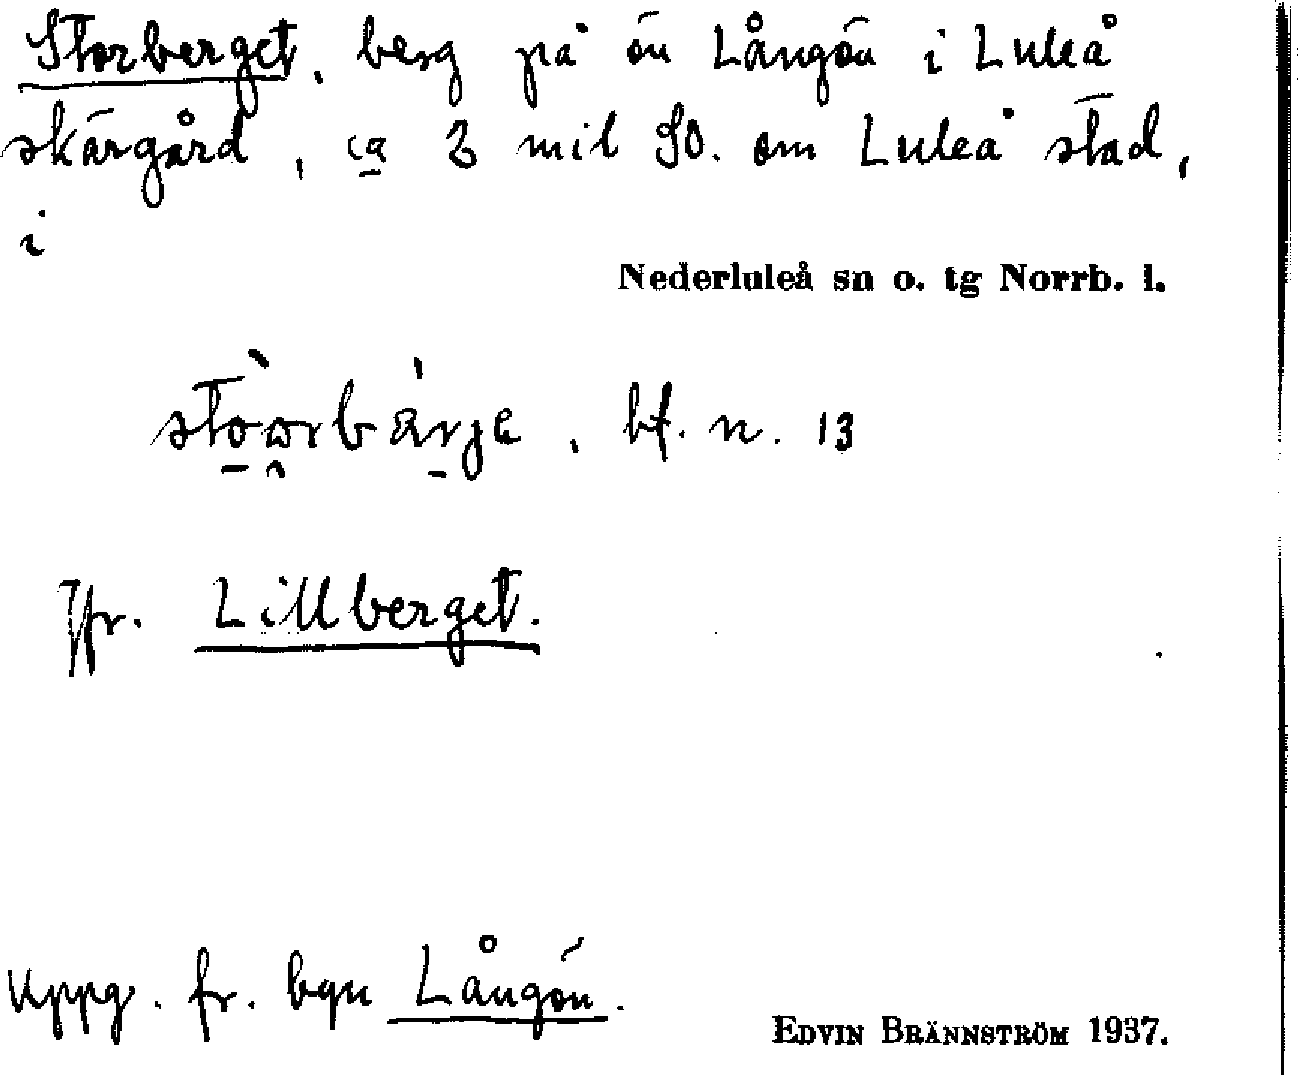 Storberget, berg på ön Långön i Luleå
skärgård, ca 3 mil SO. om Luleå stad,
i
Nederluleå sn o. tg Norrb. l.
bf. n. 13
Jfr. Lillberget.
Uppg. fr. byn Långön.
EDVIN BRÄNNSTRÖM 1937.